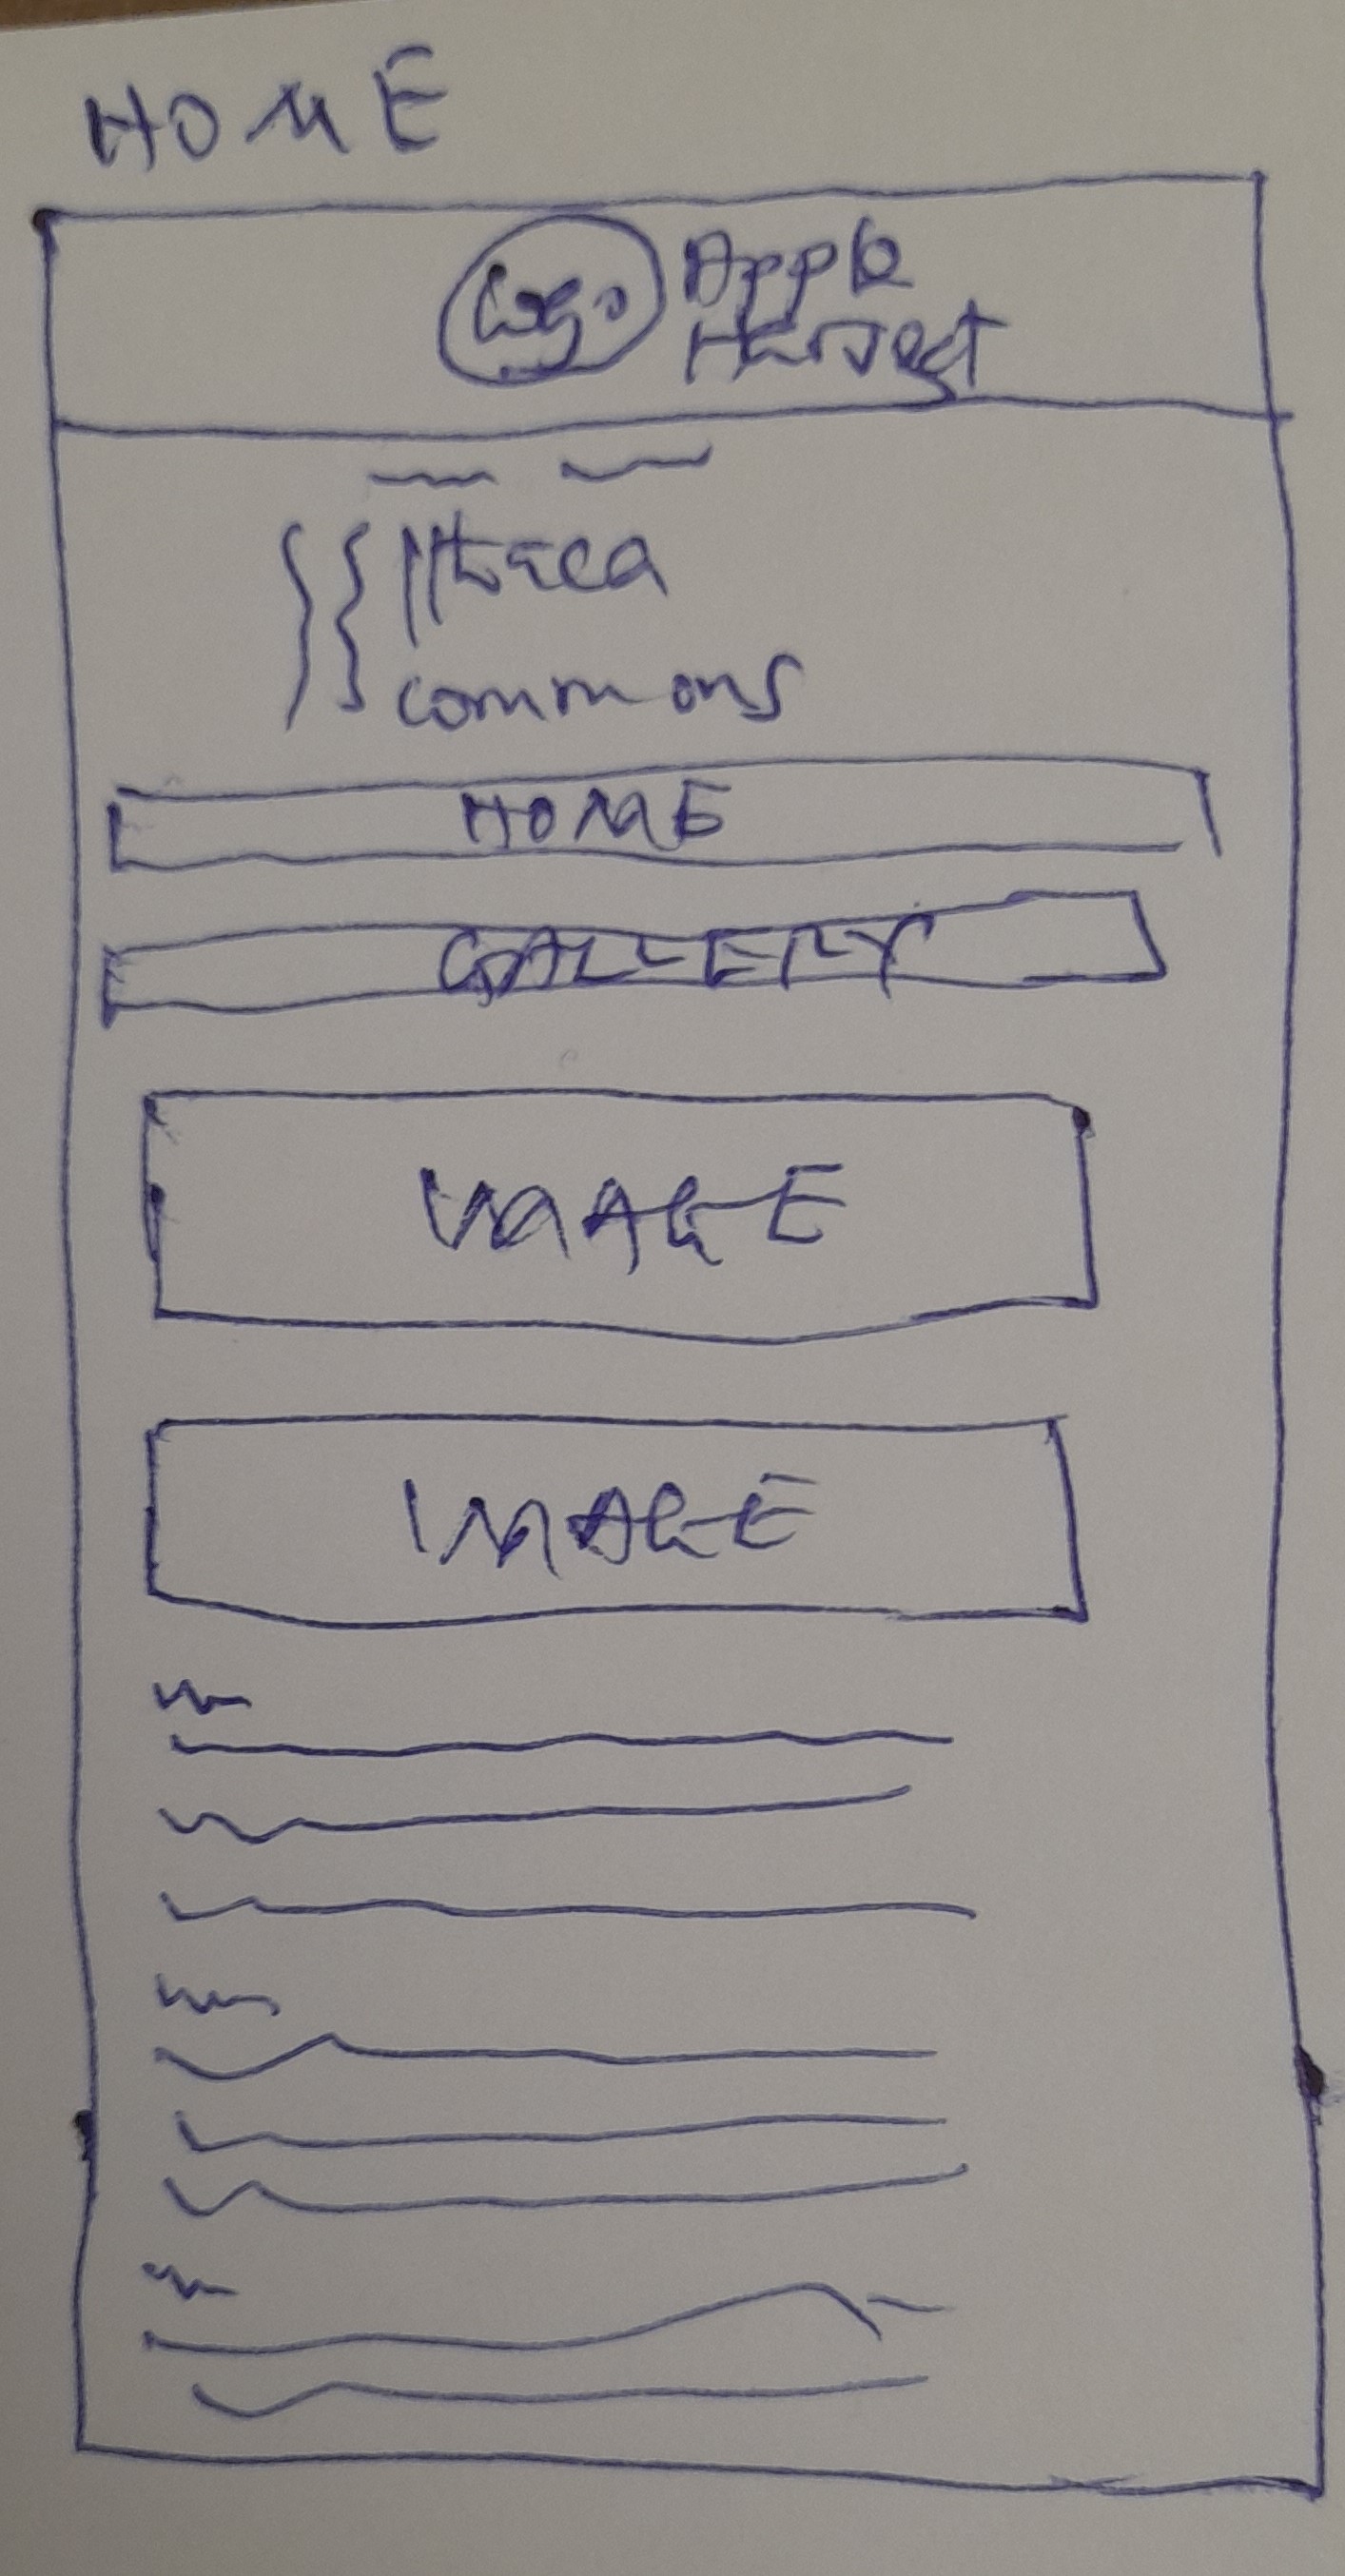 HOME
Logo
Apple
Harvest
Ithaca
commons
HOME
GALLERY
IMAGE
IMAGE